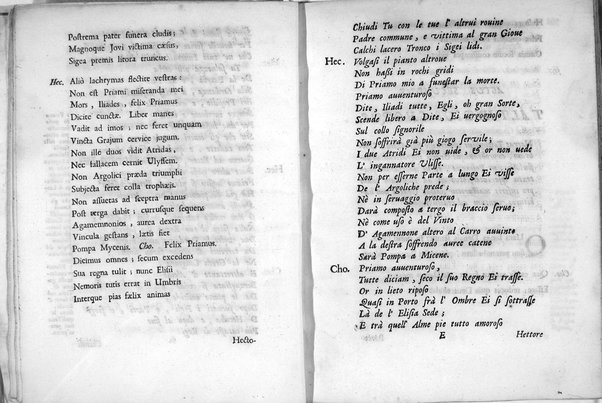 Postrema pater funera cludis;
Magnoque Jovi victima cæsus,
Sigea premis litora truncus.
Hec. Aliò lachrymas flectite vestras:
Non est Priami miseranda mei
Mors, Iliades, felix Priamus
Dicite cunctæ. Liber manes
Vadit ad imos; nec feret unquam
Vincta Grajum cervice jugum.
Non ille duos vidit Atridas,
Nec fallacem cernit Ulyssem.
Non Argolici præda triumphi
Subjecta feret colla trophæis.
Non assuetas ad sceptra manus
Post terga dabit; currusque sequens
Agamemnonios, aurea dextra
Vincula gestans, latis fiet
Pompa Mycenis. Cho. Felix Priamus.
Dicimus omnes; secum excedens
Sua regna tulit; nunc Elisii
Nemoris tutis errat in Umbris
Interque pias fœlix animas
Hesto-
Chiudi Tu con le tue l' altrui rouine
Padre commune, e vittima al gran Gioue
Calchi lacero Tronco i Sigei lidi.
Hec. Volgasi il pianto altroue
Non hasi in rochi gridi
Di Priamo mio a funestar la morte.
Priamo auuenturoso
Dite, Iliadi tutte, Egli, oh gran Sorte,
Scende libero a Dite, Ei vergognoso
Sul collo signorile
Non soffrirà già più giogo servile;
I due Atridi Ei non uide, & or non uede
L' ingannatore Ulisse.
Non per esserne Parte a lungo Ei visse
De l' Argoliche prede;
Nè in seruaggio proteruo
Darà composto a tergo il braccio seruo;
Nè come uso è del Vinto
D' Agamennone altero al Carro auuinto
A la destra soffrendo auree catene
Sarà Pompa a Micene.
Cho. Priamo auuenturoso,
Tutte diciam, seco il suo Regno Ei trasse.
Or in lieto riposo
Quasi in Porto frà l' Ombre Ei si sottrasse
Là de l' Elisia Sede;
E trà quell' Alme pie tutto amoroso
E Hettore